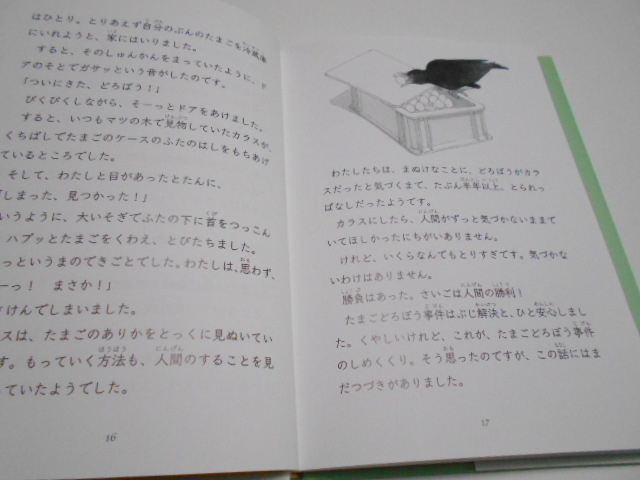 はひとり。とりあえず自分のぶんのたまごを冷蔵庫
にいれようと、家にはいりました。
すると、そのしゅんかんをまっていたように、ド
アのそとでガサッという音がしたのです。
「ついにきた、どろぼう！」
びくびくしながら、そーっとドアをあけました。
すると、いつもマツの木で見物していたカラスが、
くちばしでたまごのケースのふたのはしをもちあげ
ているところでした。
そして、わたしと目があったとたんに、
「しまった、見つかった！」
いうように、大いそぎでふたの下に首をつっこん
ハブッとたまごをくわえ、とびたちました。
っというまのできごとでした。わたしは、思わず、
ーっ！ まさか！」
けんでしまいました。
スは、たまごのありかをとっくに見ぬいてい
す。もっていく方法も、人間のすることを見
っていたようでした。
16
わたしたちは、まぬけなことに、どろぼうがカラ
スだったと気づくまで、たぶん半年以上、とられっ
ぱなしだったようです。
カラスにしたら、人間がずっと気づかないままで
いてほしかったにちがいありません。
けれど、いくらなんでもとりすぎです。気づかな
いわけはありません。
勝負はあった。さいごは人間の勝利！
たまごどろぼう事件はぶじ解決と、ひと安心しまし
た。くやしいけれど、これが、たまごどろぼう事件
のしめくくり。そう思ったのですが、この話にはま
だつづきがありました。
17